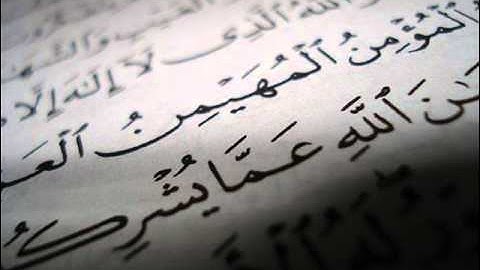 ٱلْغَيْبِ وَٱلشَّ
ٱللَّهُ ٱلَّذِى لَآ إِلَٰهَ إِلَّا
ٱلْمُؤْمِنُ ٱلْمُهَيْمِنُ ٱلْعَ
ٱللَّهِ عَمَّا يُشْرِكُ